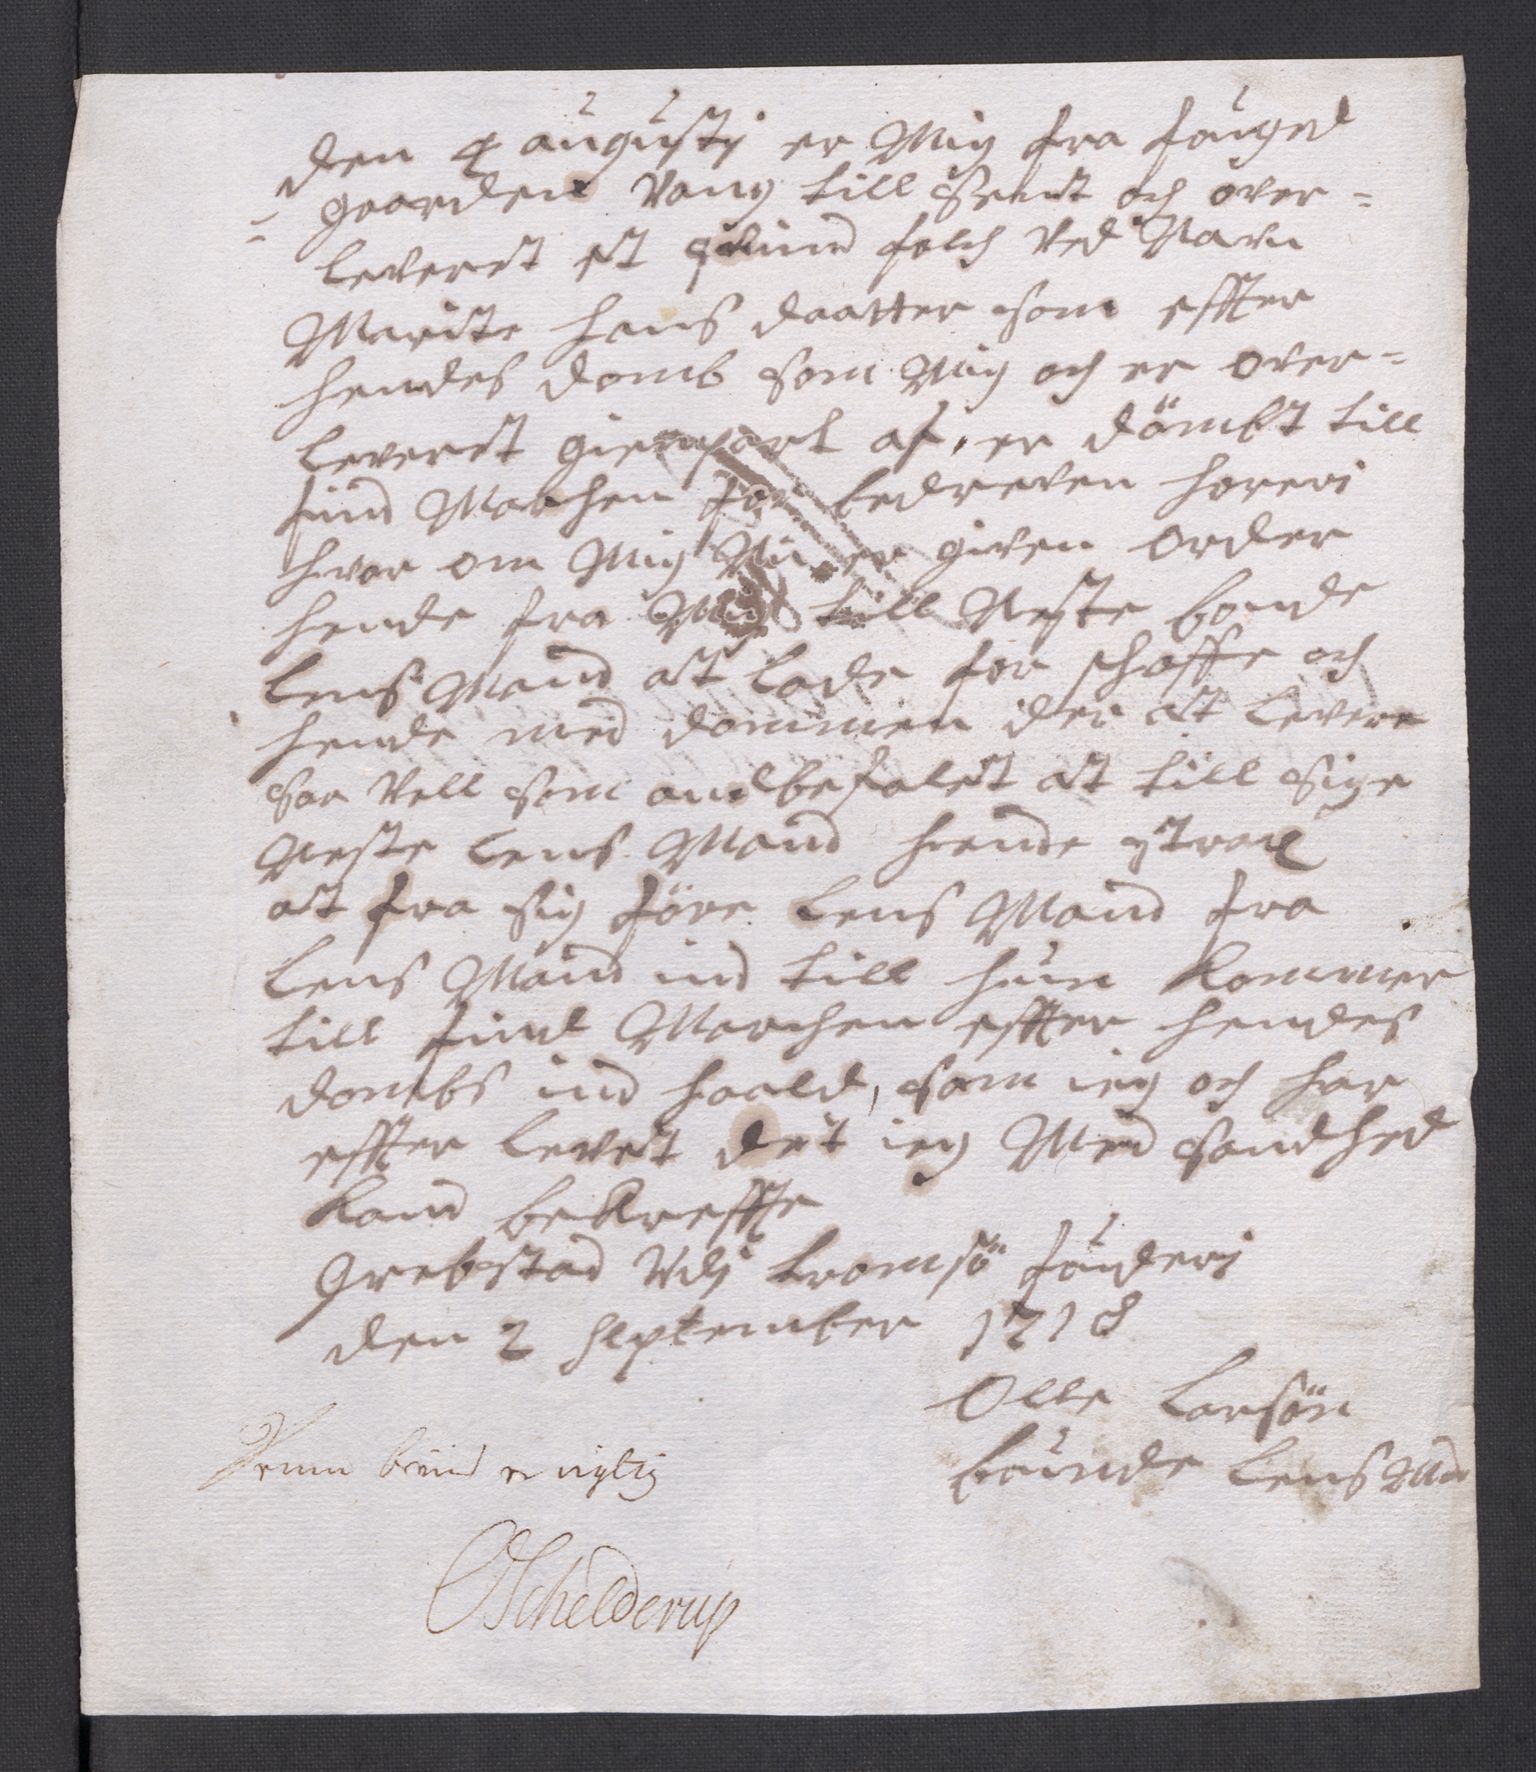 den 4 augustj er Mig fra fouged
gaarden Vang till sendt och over=
leveret et quind folch ved Navn
Marite hans daatter som effter
hendes domb som Mig och er over=
leveret gienpart af, er dömbt till
find Marchen for bedreven horeri
hvor om Mig Nu er given order
hende fra Mig till Neste bonde
lens Mand at lade for schaffe och
hende med dommen der at levere
saa vell som andbefalet at till sige
Neste lens Mand hende strax
at fra sig före lens Mand fra
lens Mand ind till hun kommer
till find Marchen effter hendes
dombs ind hold, som ieg och har
effter levet det ieg Med sandhed
kand bekreffte
Grebstad Udj tromsö fouderi
den 2 September 1718
Olle Larsön
bounde lens Mand
Denne beviis er rigtig
OSchelderup